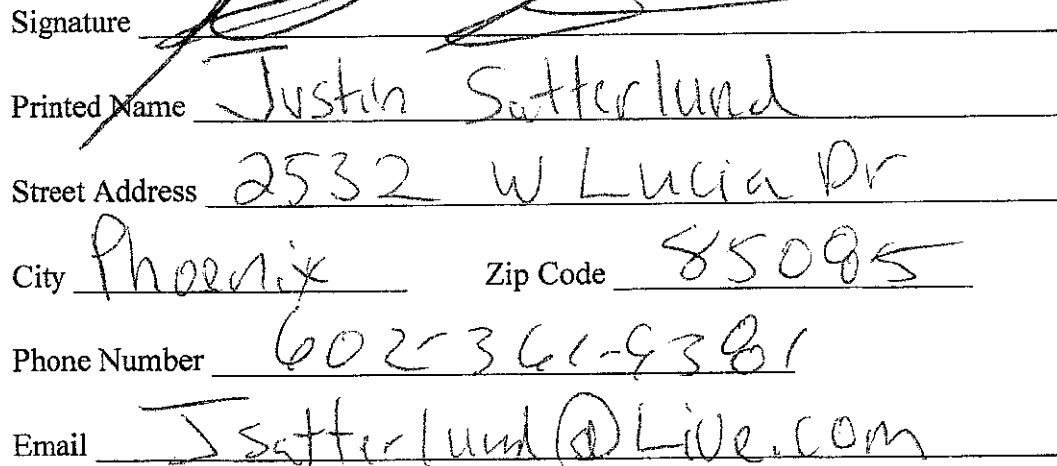 Signature
Printed Name Justin Satterlund
Street Address 2532 W Lucia Dr
City Phoenix Zip Code 85085
Phone Number 602-361-9381
Email Jsatterlund@Live.com